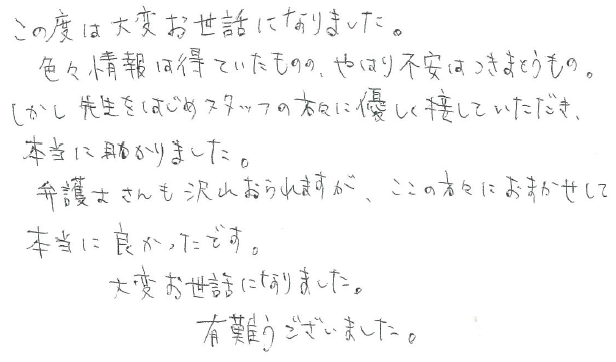 この度は大変お世話になりました。
色々情報は得ていたものの、やはり不安はつきまとうもの。
しかし先生をはじめスタッフの方々に優しく接していただき、
本当に助かりました。
弁護士さんも沢山おられますが、ここの方々におまかせして
本当に良かったです。
大変お世話になりました。
有難うございました。